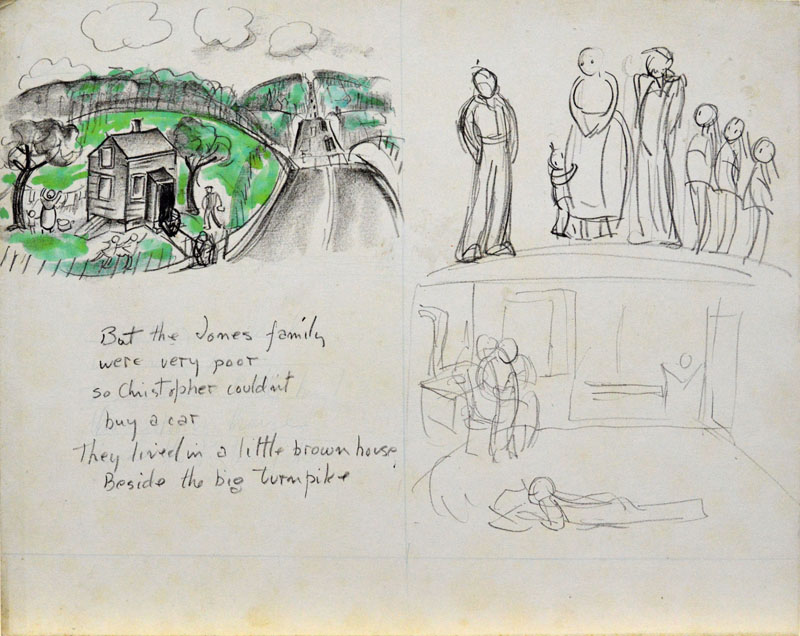 But the Jones family
were very poor
so Christopher couldn't
buy a car
They lived in a little brown house
Beside the big turnpike